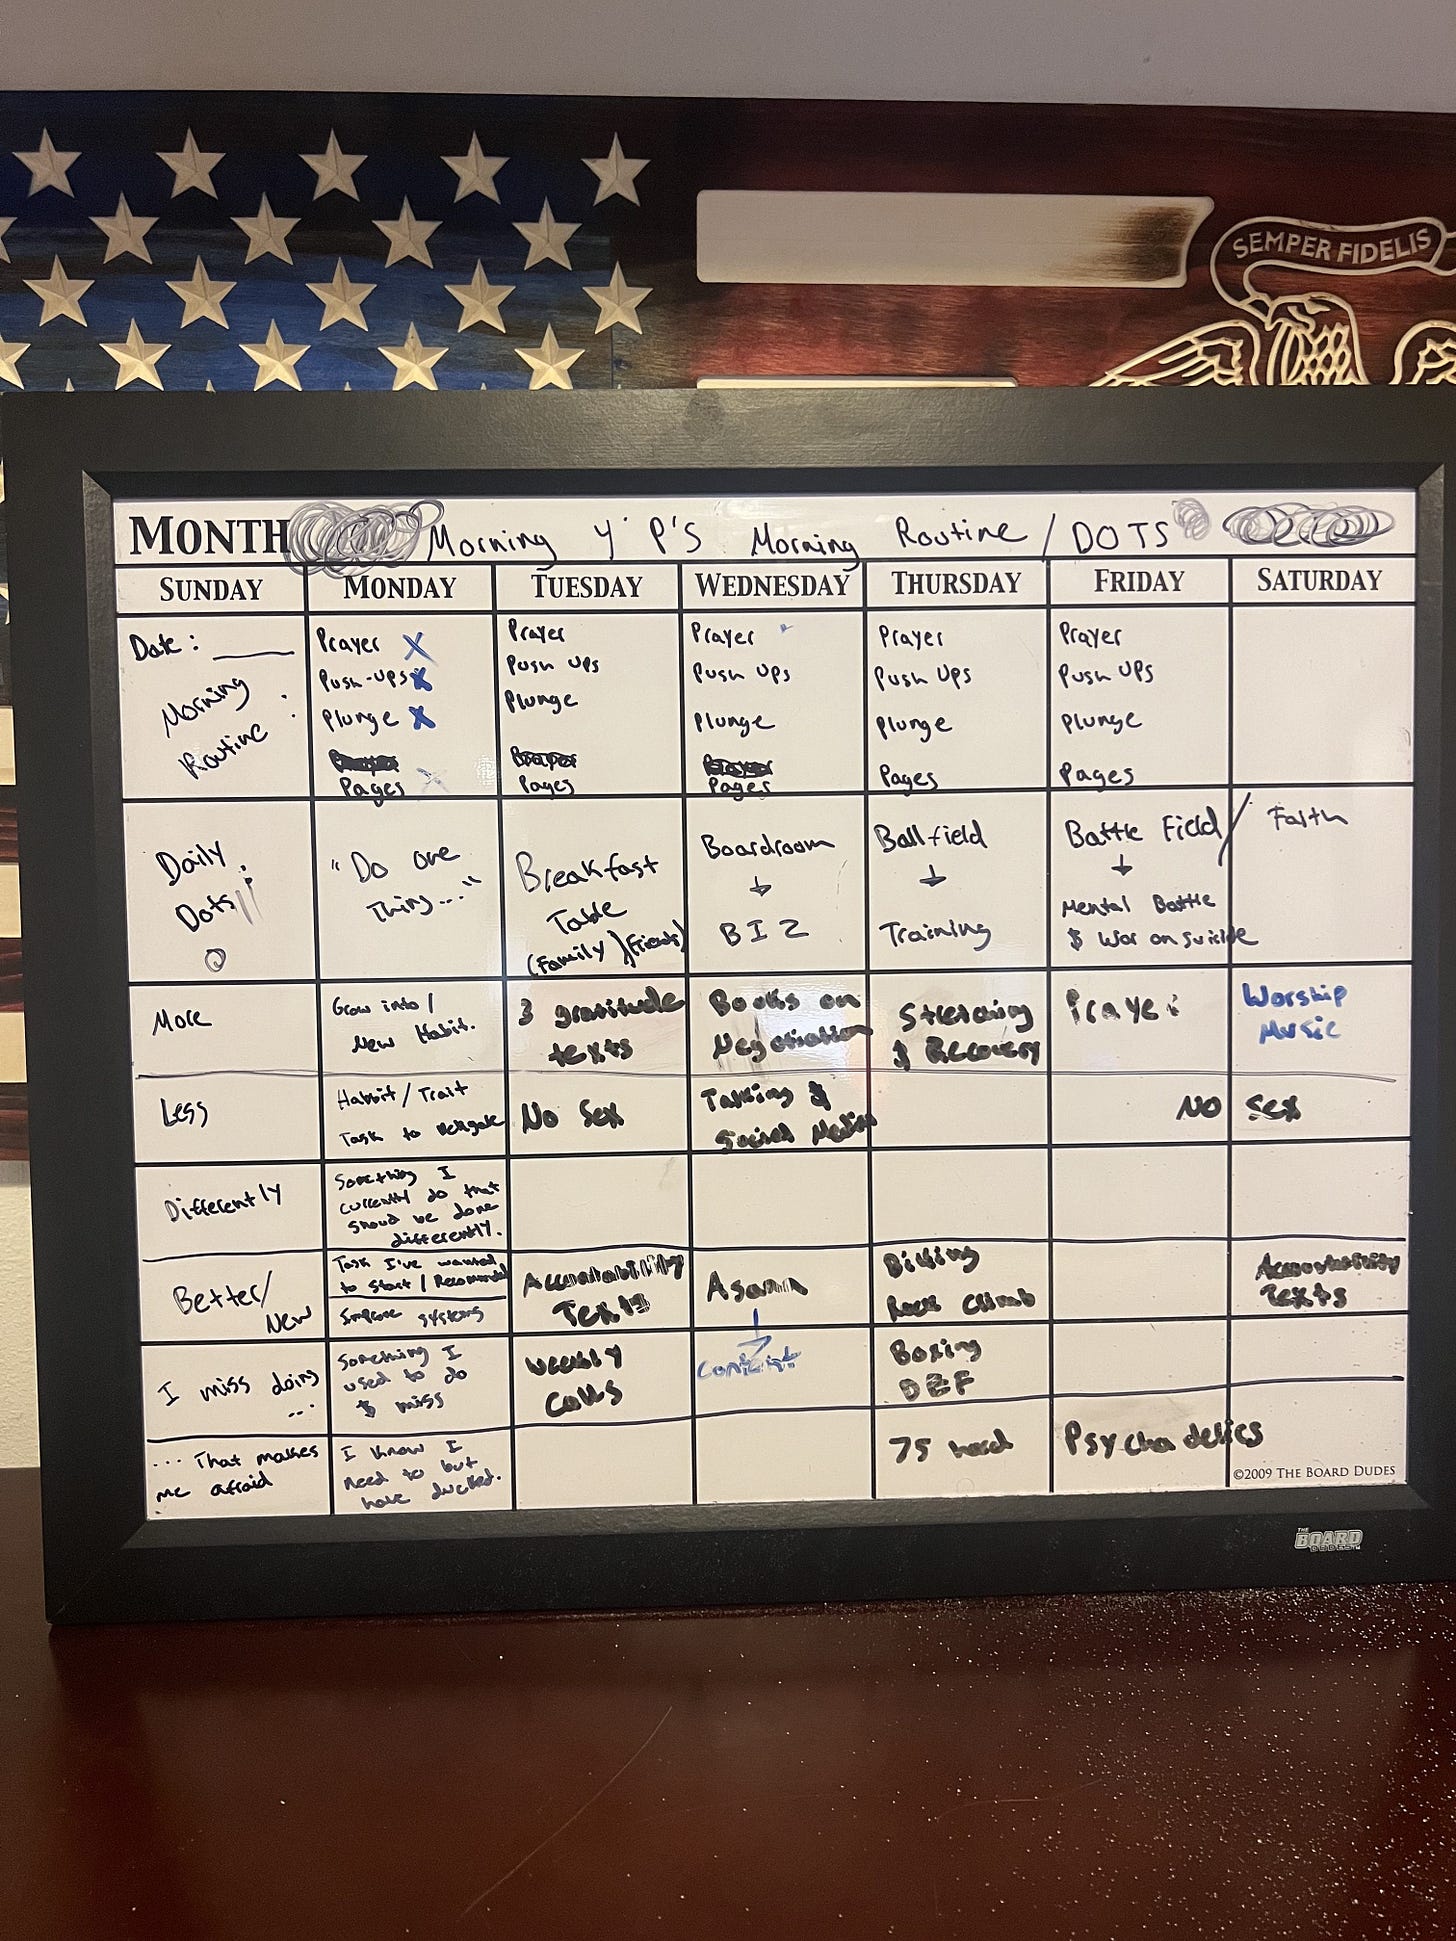 SEMPER FIDELIS
MONTH Morning Y P'S Morning Routine / DOTS
SUNDAY MONDAY TUESDAY WEDNESDAY THURSDAY FRIDAY SATURDAY
Date: ____
Morning
Routine :
Prayer X
Push-ups X
Plunge X
Pages X
Prayer
Push Ups
Plunge
Pages
Prayer
Push Ups
Plunge
Pages
Prayer
Push Ups
Plunge
Pages
Prayer
Push Ups
Plunge
Pages
Daily
Dots
"Do one
Thing..."
Breakfast
Table
(Family)(Friends)
Boardroom
↓
BIZ
Ballfield
↓
Training
Battle Field /
↓
Mental Battle
$ War on suicide
Faith
More
Grow into /
New Habit.
3 gratitude
texts
Books on
Negotiation
Stretching
$ Recovery
Prayer
Worship
Music
Less
Habbit / Trait
Task to
No Sex
Talking $
Social Media
No Sex
Differently
Something I
currently do that
should be done
differently.
Better/
New
Task I've wanted
to start /
systems
Accountability
Texts
Asana
Biking
Rock Climb
Accountability
Texts
I miss doing
...
Something I
used to do
$ miss
Weekly
Calls
Boxing
DEF
... That makes
me afraid
I know I
need to but
have ducked.
75 hard
Psychadelics
©2009 THE BOARD DUDES
THE
BOARD
DUDES